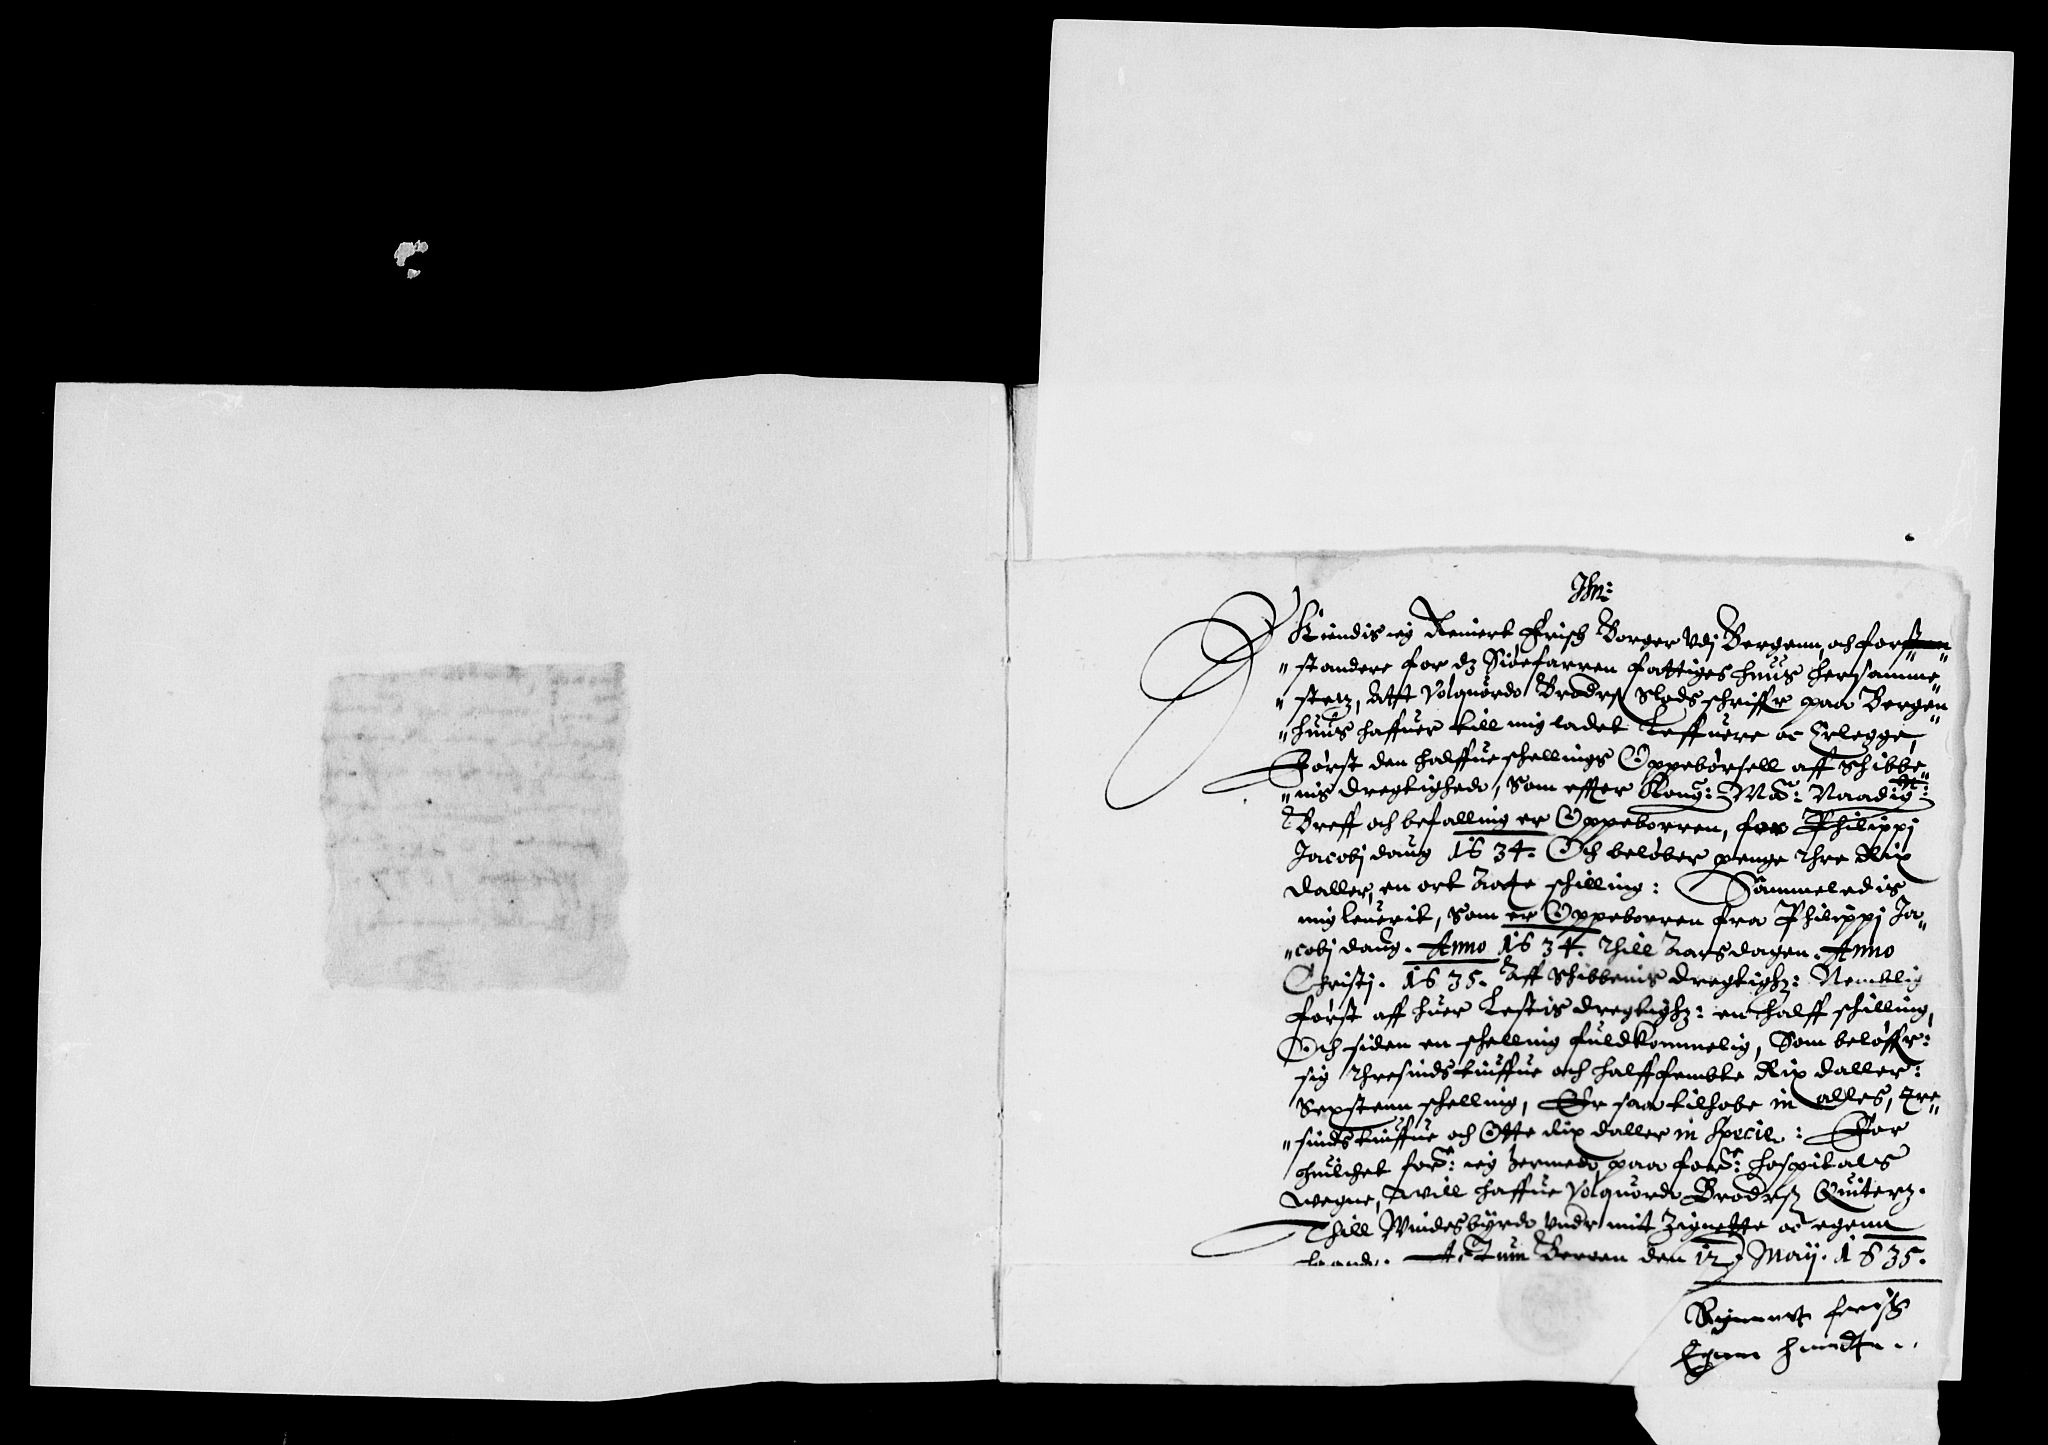 Jhn:
Kiendis ieg Reinert Frisch Borger Vdj Bergenn, och forst
" standere for dz Siøefarren fattiges huus hersamme"
" stetz, Att Volquordo Brodrsz Slodsschriffr paa Bergen"
" huus haffuer till mig ladet Leffuere oc Erlegge,
Først den halffue schellings Oppebørsell aff Schibbe"
" nis dregtighedo, Som effter Kong: Maÿ: Naadigste:
Breff och befalling er Oppeborren, for Philippj
Jacobj daug 1634. Och beløber penge thre Rix
daller, en ort Aatte schilling: Sammeledis
mig leuerit, Som er Oppeborren fra Philippj Ja"
" cobj daug. Anno 1634. thill Aarsdagen. Anno
Christj. 1635. Aff Schibbenis dregtighz: Nemblig
først aff huer Lestis dregtighz: en halff schilling,
Och siden en schelling fuldkommelig, Som beløffr:
sig thresindstiuffue och halffembte Rix daller:
Sexstenn schelling, Er saa tilhobe in alles, Tre"
" sindstiuffue och Otte Rix daller in specie: For
huilchet ford: ieg hermedo, paa ford: hospitals
wegne, will haffue Volquordo Brodrsz Quiterz.
Thill Windesbyrdo vndr mit Zignette oc egenn
haandt. Actum Bergen den 12 Maij. 1635.
Reynnert friss
Egenn handt